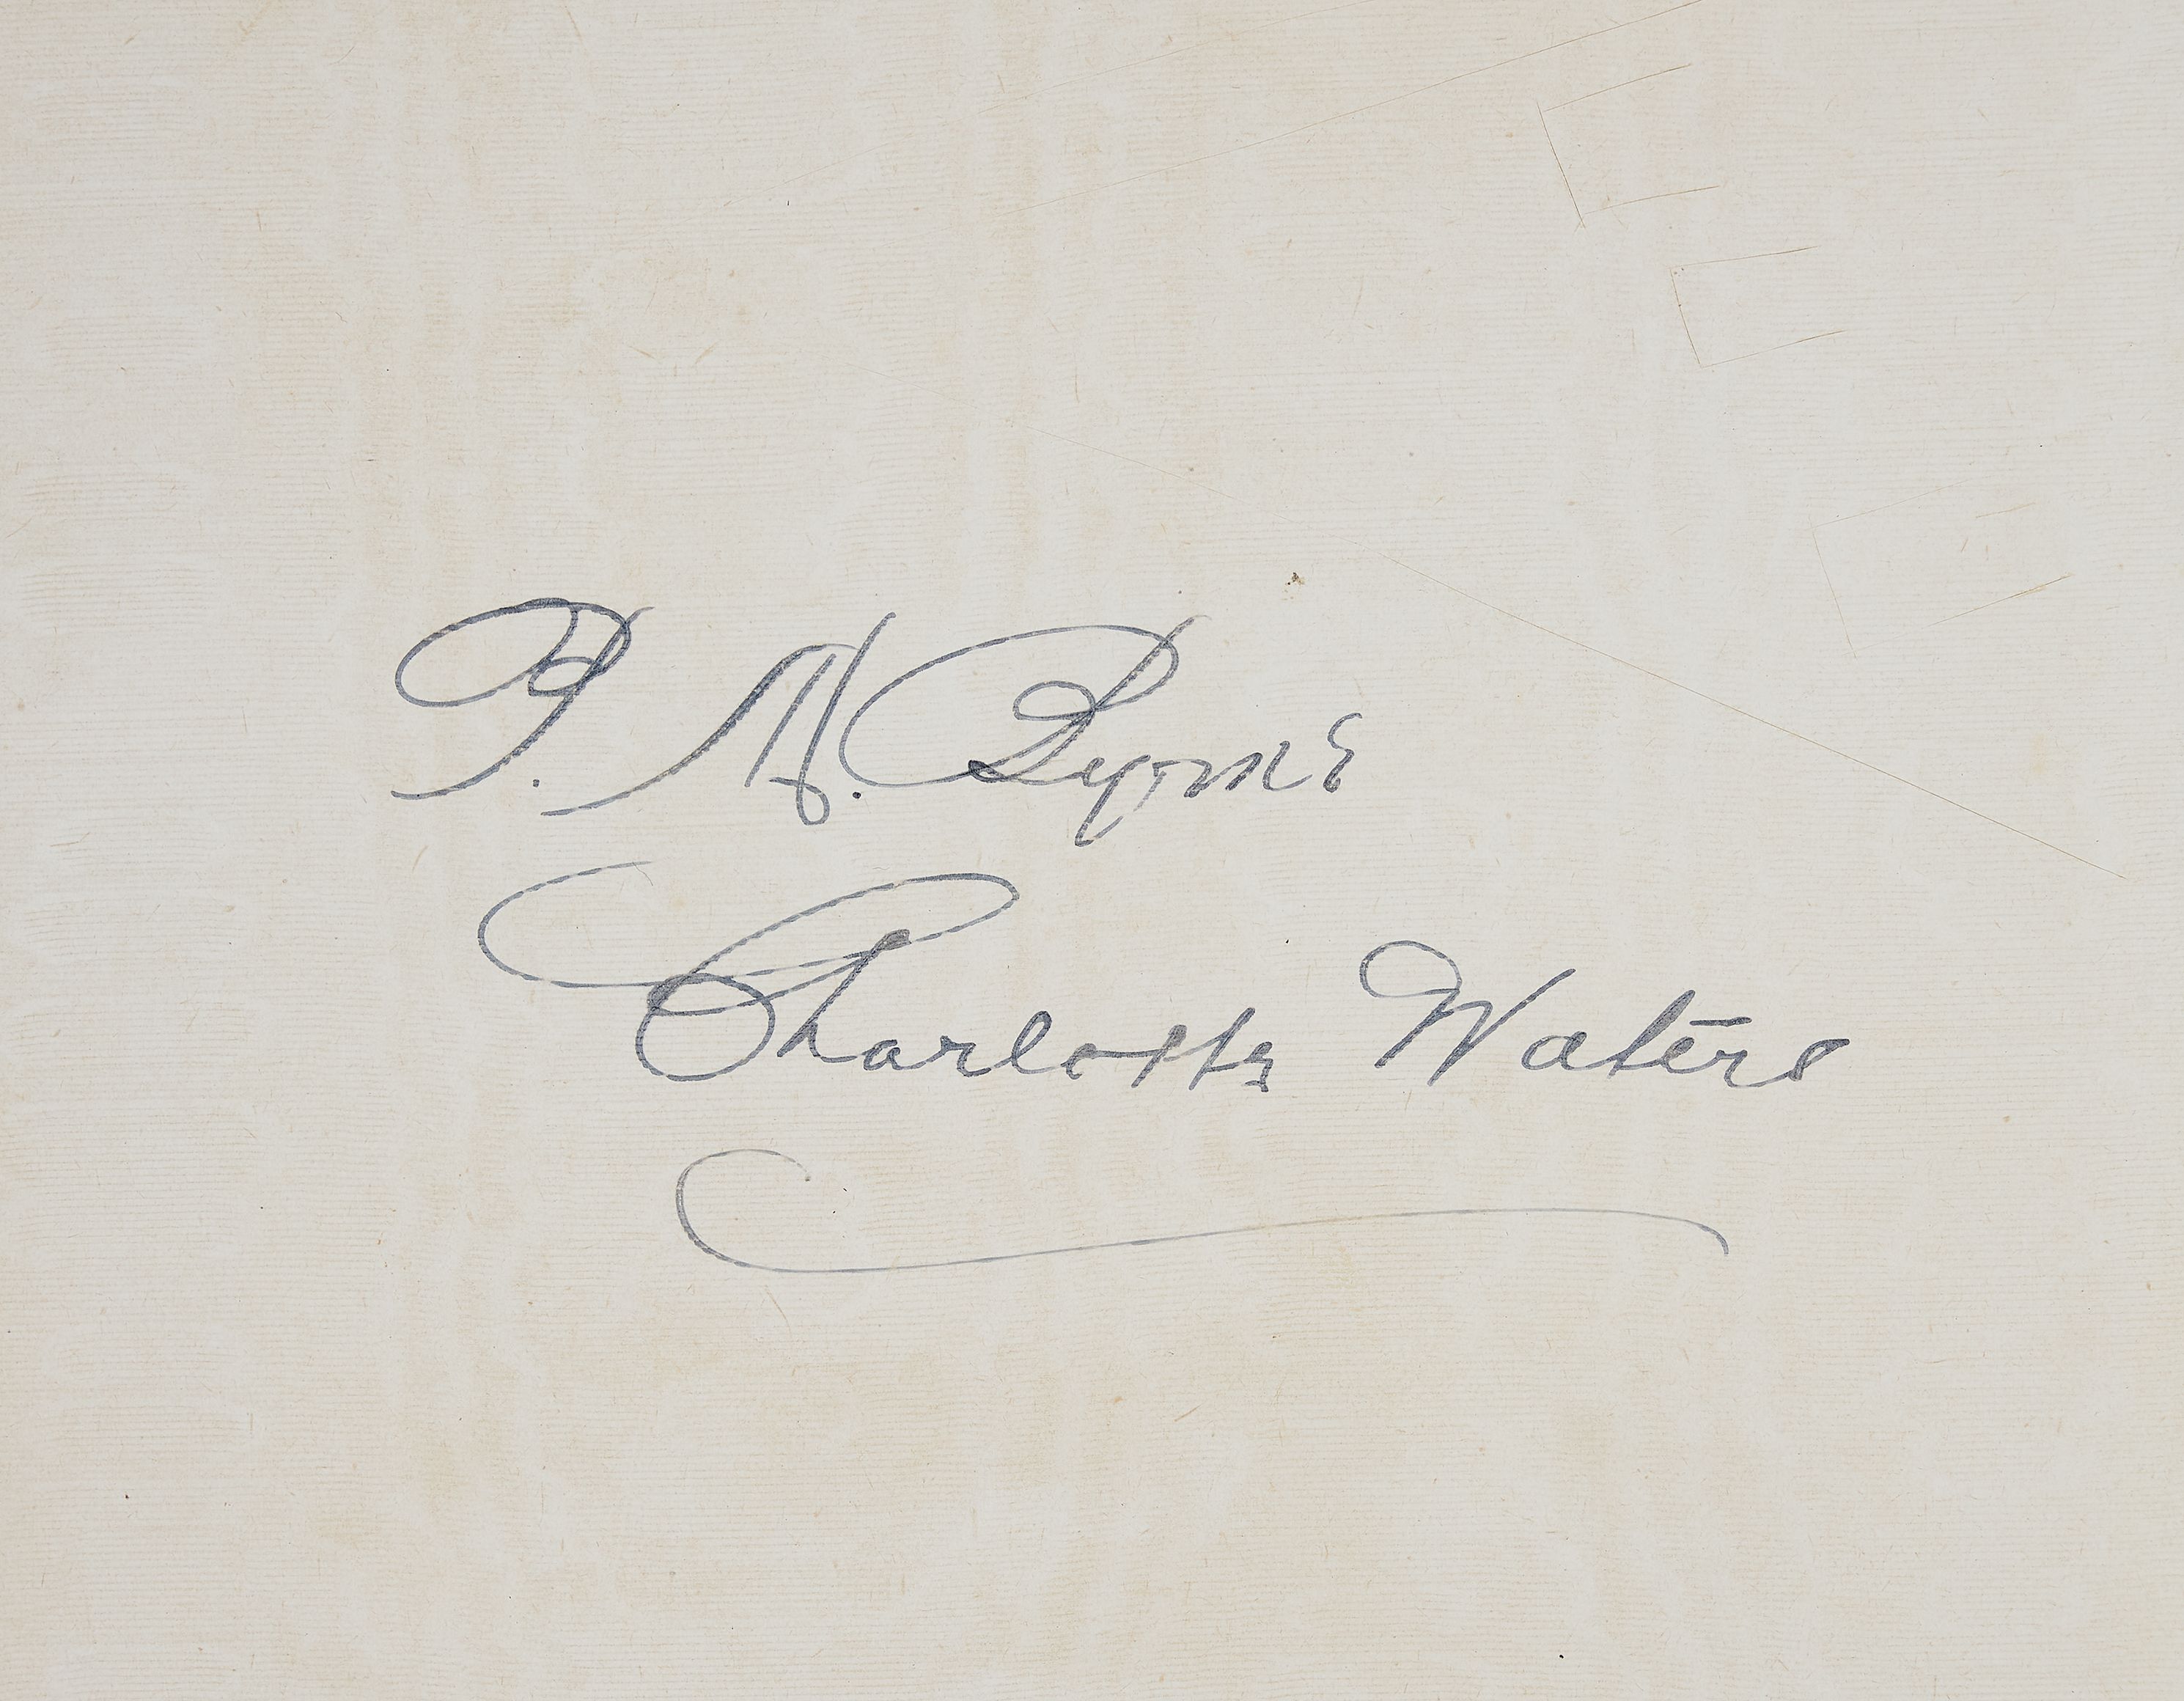 P. M. Byrne
Charlotte Waters